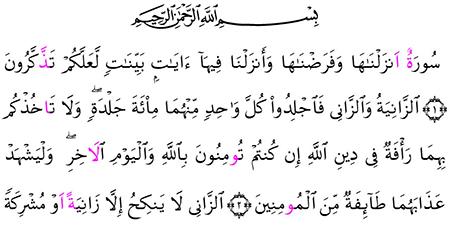 بِسْمِ اللَّهِ الرَّحْمَٰنِ الرَّحِيمِ
سُورَةٌ اَنزَلْنَٰهَا وَفَرَضْنَٰهَا وَأَنزَلْنَا فِيهَآ ءَايَٰتِۭ بَيِّنَٰتٖ لَّعَلَّكُمْ تَذَّكَّرُونَ
﴿١﴾ اَلزَّانِيَةُ وَالزَّانِى فَاجْلِدُوا۟ كُلَّ وَٰحِدٖ مِّنْهُمَا مِاْئَةَ جَلْدَةٖۖ وَلَا تَاخُذْكُم
بِهِمَا رَأْفَةٌ فِى دِينِ اللَّهِ إِن كُنتُمْ تُومِنُونَ بِاللَّهِ وَالْيَوْمِ الَاخِرِۖ وَلْيَشْهَدْ
عَذَابَهُمَا طَآئِفَةٌ مِّنَ الْمُومِنِينَ ﴿٢﴾ اَلزَّانِى لَا يَنكِحُ إِلَّا زَانِيَةً اَوْ مُشْرِكَةٗ